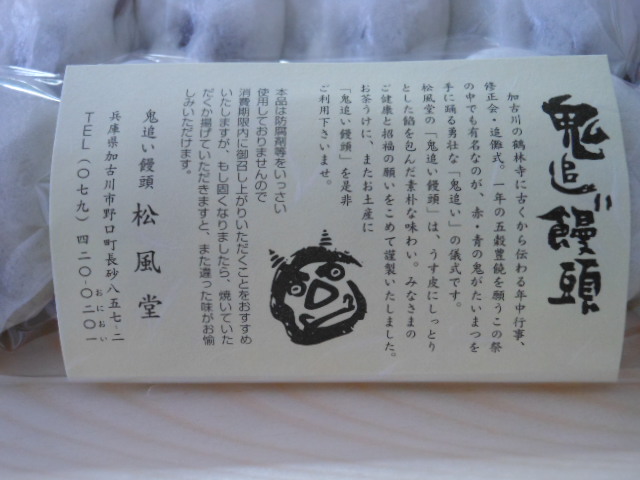 鬼追い饅頭
加古川の鶴林寺に古くから伝わる年中行事、
修正会・追儺式。一年の五穀豊饒を願うこの祭
の中でも有名なのが、赤・青の鬼がたいまつを
手に踊る勇壮な「鬼追い」の儀式です。
松風堂の「鬼追い饅頭」は、うす皮にしっとり
とした餡を包んだ素朴な味わい。みなさまの
ご健康と招福の願いをこめて謹製いたしました。
お茶うけに、またお土産に
「鬼追い饅頭」を是非
ご利用下さいませ。
本品は防腐剤等をいっさい
使用しておりませんので
消費期限内に御召し上がりいただくことをおすすめ
いたしますが、もし固くなりましたら、焼いていた
だくか揚げていただきますと、また違った味がお愉
しみいただけます。
鬼追い饅頭 松風堂
兵庫県加古川市野口町長砂八五七-二
TEL(〇七九)四二〇-〇二〇一
おにおい